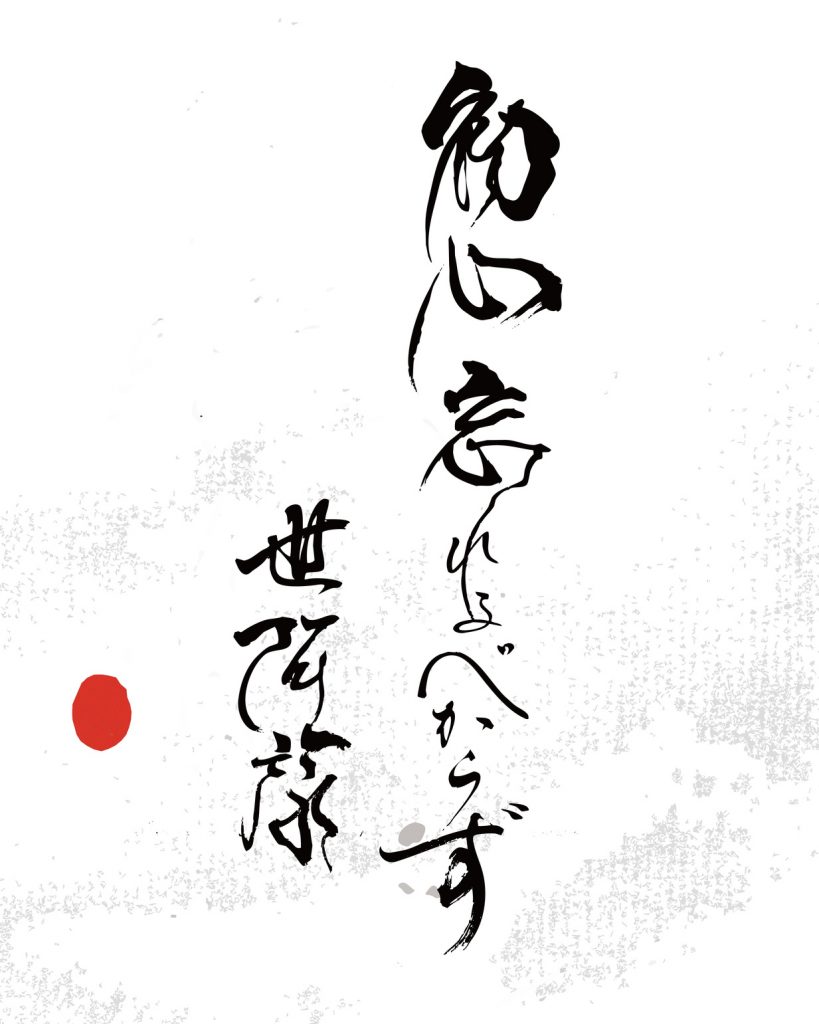 初心忘れるべからず
世阿彌